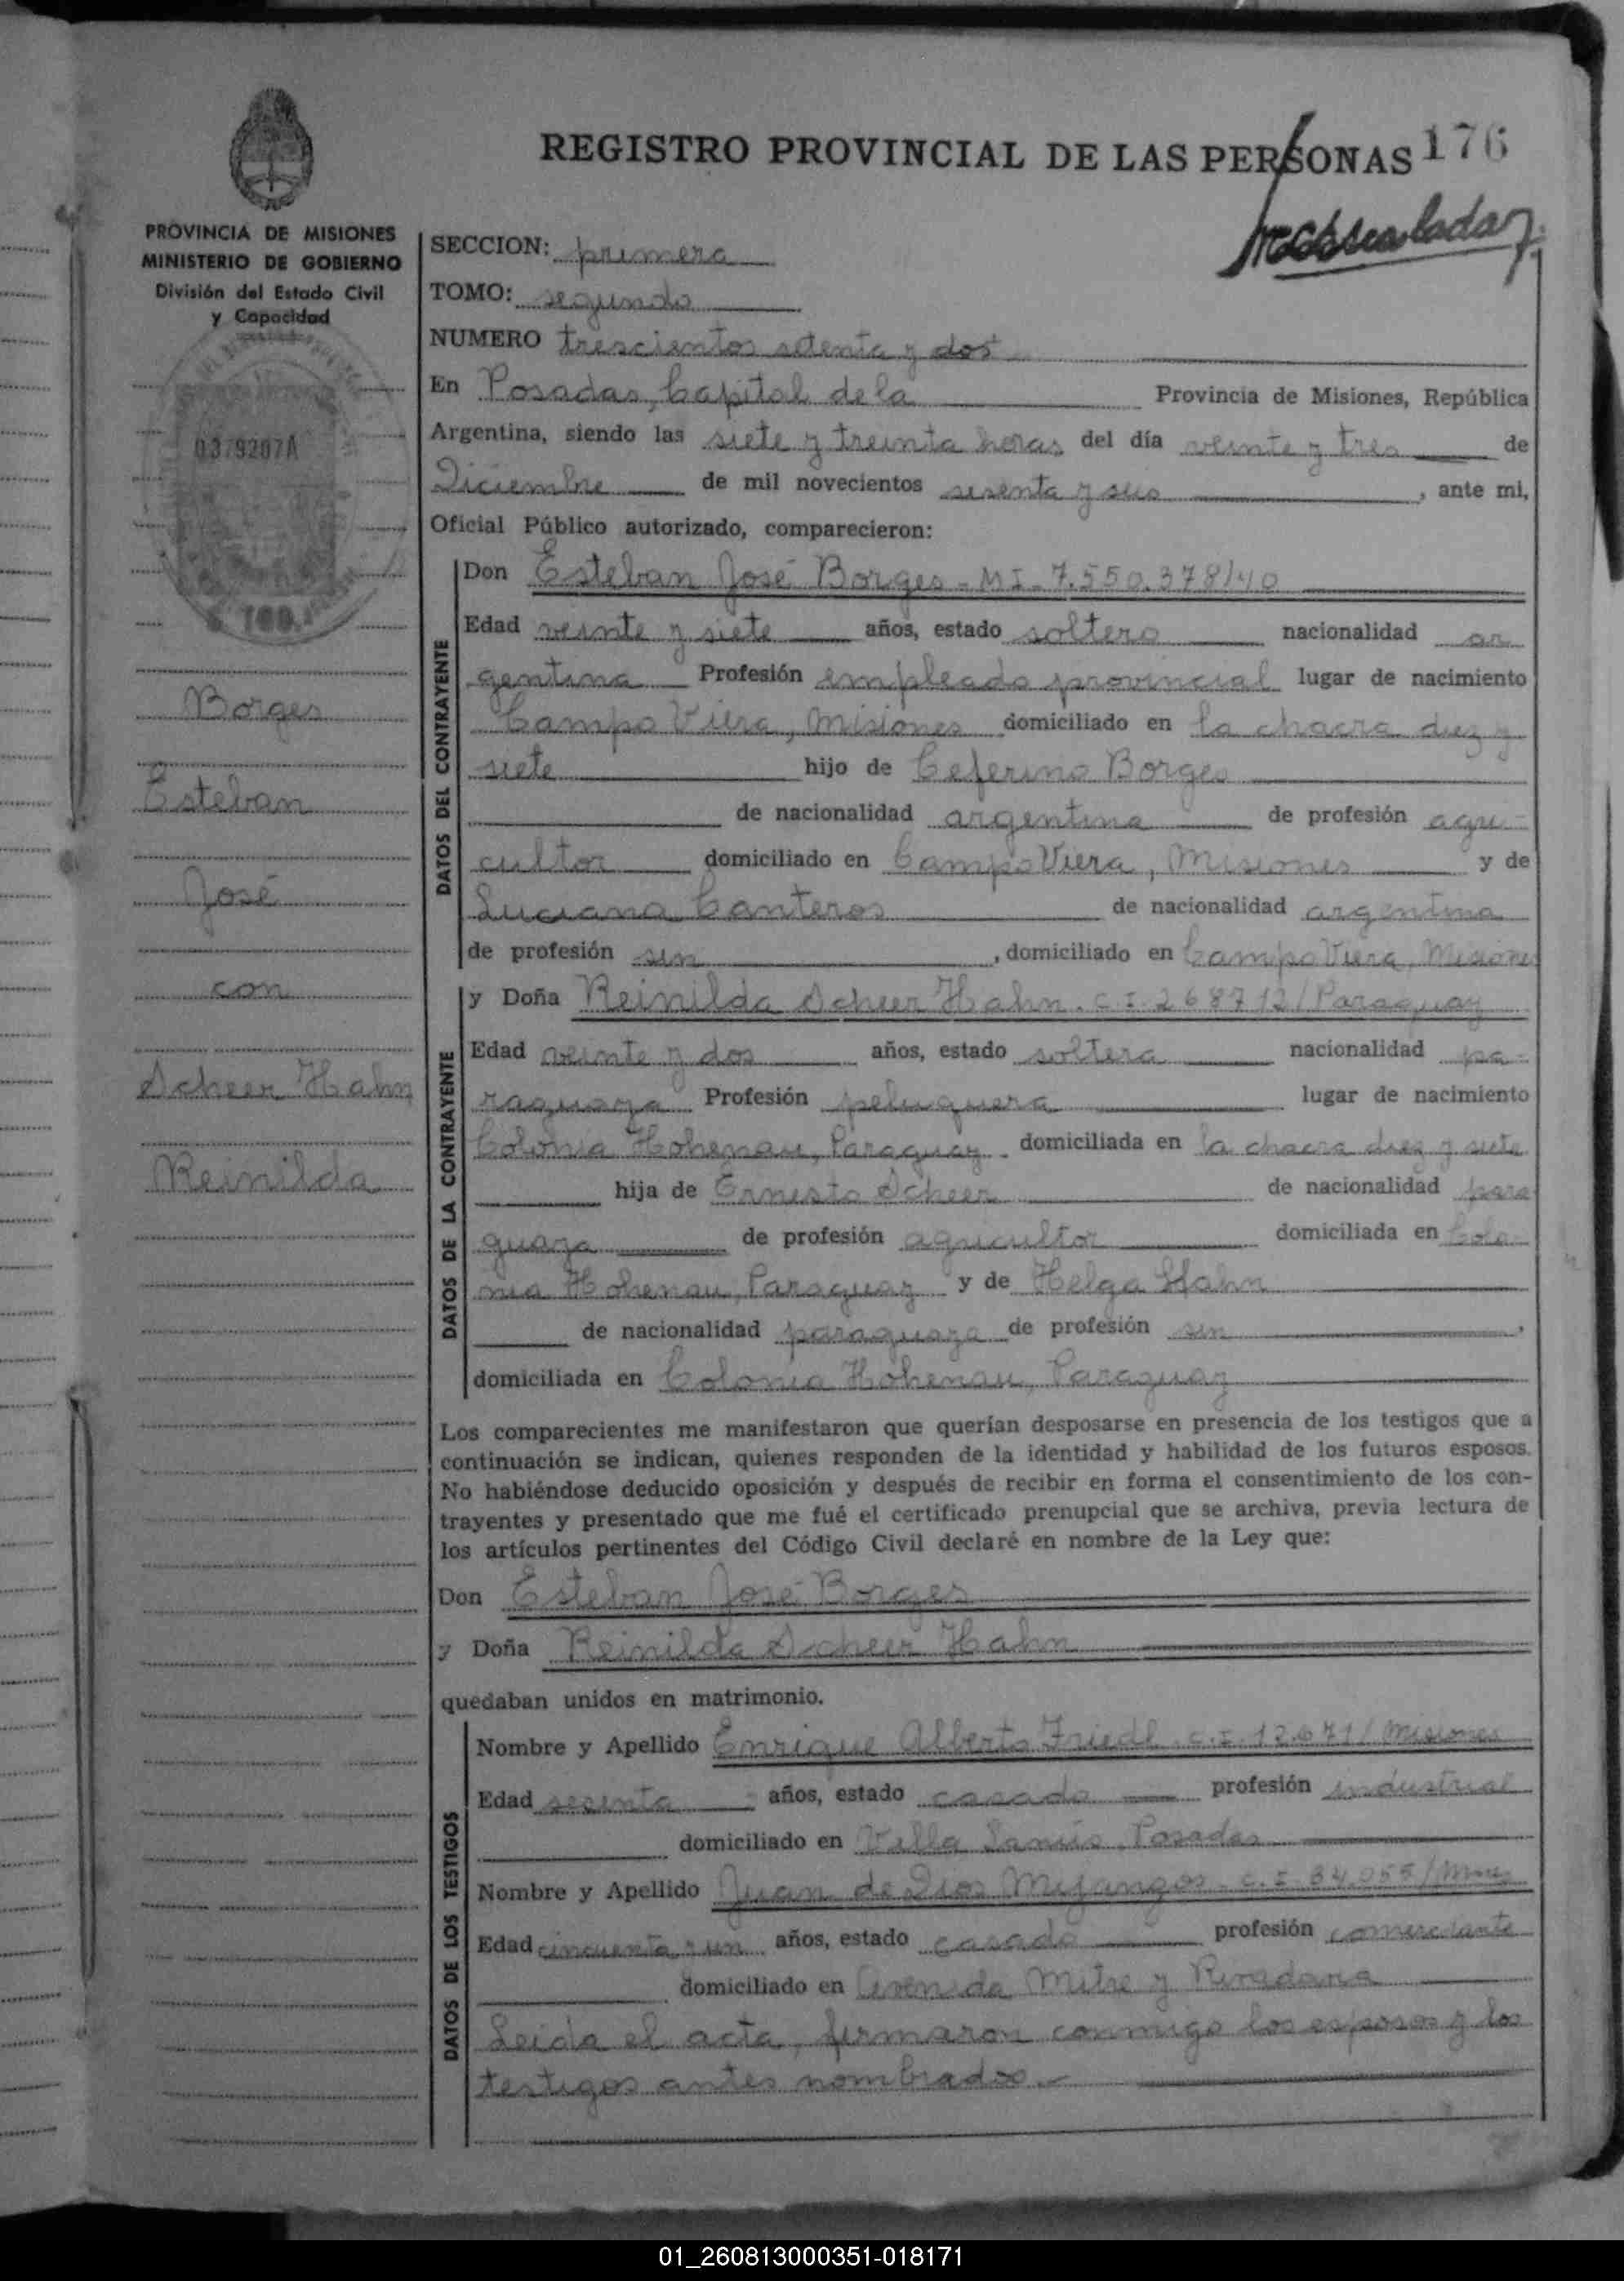 REGISTRO PROVINCIAL DE LAS PERSONAS 176
PROVINCIA DE MISIONES
MINISTERIO DE GOBIERNO
División del Estado Civil
y Capacidad
0379207A
100.
Borges
Esteban
José
con
Scheer Hahn
Reinilda
SECCION: primera
TOMO: segundo
NUMERO trescientos setenta y dos
En Posadas, Capital de la Provincia de Misiones, República
Argentina, siendo las siete y treinta horas del día veinte y tres de
Diciembre de mil novecientos sesenta y seis, ante mi,
Oficial Público autorizado, comparecieron:
DATOS DEL CONTRAYENTE
Don Esteban José Borges - MI - 7.550.378/40
Edad veinte y siete años, estado soltero nacionalidad ar
gentina Profesión empleado provincial lugar de nacimiento
Campo Viera, Misiones domiciliado en la chacra diez y
siete hijo de Ceferino Borges
de nacionalidad argentina de profesión agri-
cultor domiciliado en Campo Viera, Misiones y de
Luciana Canteros de nacionalidad argentina
de profesión sin, domiciliado en Campo Viera, Misiones
DATOS DE LA CONTRAYENTE
y Doña Reinilda Scheer Hahn. C.I. 268712/Paraguay
Edad veinte y dos años, estado soltera nacionalidad pa-
raguaya Profesión peluquera lugar de nacimiento
Colonia Hohenau, Paraguay. domiciliada en la chacra diez y siete
hija de Ernesto Scheer de nacionalidad para
guaya de profesión agricultor domiciliada en Colo-
nia Hohenau, Paraguay y de Helga Hahn
de nacionalidad paraguaya de profesión sin,
domiciliada en Colonia Hohenau, Paraguay
Los comparecientes me manifestaron que querían desposarse en presencia de los testigos que a
continuación se indican, quienes responden de la identidad y habilidad de los futuros esposos.
No habiéndose deducido oposición y después de recibir en forma el consentimiento de los con-
trayentes y presentado que me fué el certificado prenupcial que se archiva, previa lectura de
los artículos pertinentes del Código Civil declaré en nombre de la Ley que:
Don Esteban José Borges
y Doña Reinilda Scheer Hahn
quedaban unidos en matrimonio.
DATOS DE LOS TESTIGOS
Nombre y Apellido Enrique Alberto Friedl. C.I. 12.671/Misiones
Edad sesenta años, estado casado profesión industrial
domiciliado en Villa Lanús, Posadas
Nombre y Apellido Juan de Dios Mijangos - C.I. 34.055/Mnes
Edad cincuenta y un años, estado casado profesión comerciante
domiciliado en Avenida Mitre y Rivadavia
Leida el acta, firmaron conmigo los esposos y los
testigos antes nombrados.-
01_260813000351-018171